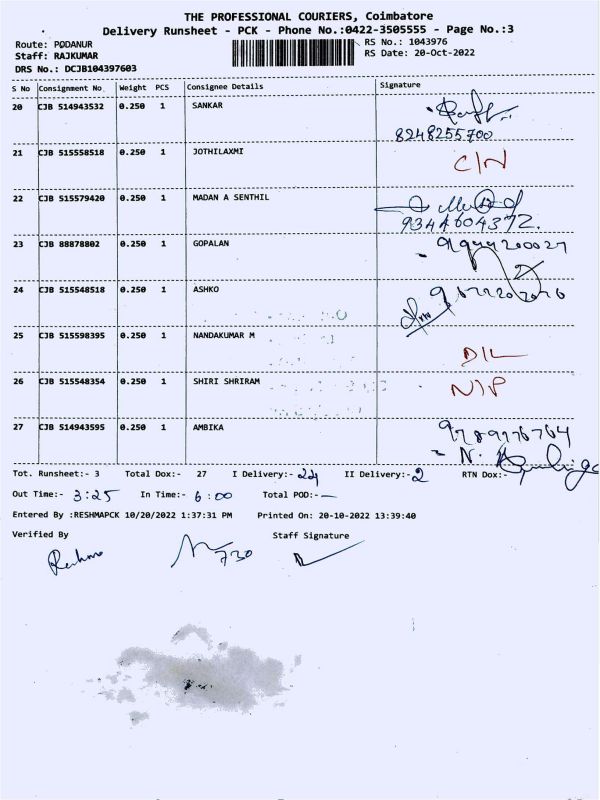 THE PROFESSIONAL COURIERS, Coimbatore
Delivery Runsheet - PCK - Phone No.:0422-3505555 - Page No.:3
Route: PODANUR
RS No.: 1043976
Staff: RAJKUMAR
RS Date: 20-Oct-2022
DRS No.: DCJB104397603
S No Consignment No Weight PCS Consignee Details Signature
20 CJB 514943532 0.250 1 SANKAR
8248255700
21 CJB 515558518 0.250 1 JOTHILAXMI C/N
22 CJB 515579420 0.250 1 MADAN A SENTHIL
9344604372.
23 CJB 88878802 0.250 1 GOPALAN
24 CJB 515548518 0.250 1 ASHKO
25 CJB 515598395 0.250 1 NANDAKUMAR M
D/L
26 CJB 515548354 0.250 1 SHIRI SHRIRAM N/P
27 CJB 514943595 0.250 1 AMBIKA
9789976764
Tot. Runsheet:- 3 Total Dox:- 27 I Delivery:- 24 II Delivery:- 2 RTN Dox:-
Out Time:- 3:25 In Time:- 6:00 Total POD:- —
Entered By :RESHMAPCK 10/20/2022 1:37:31 PM Printed On: 20-10-2022 13:39:40
Verified By Staff Signature
730